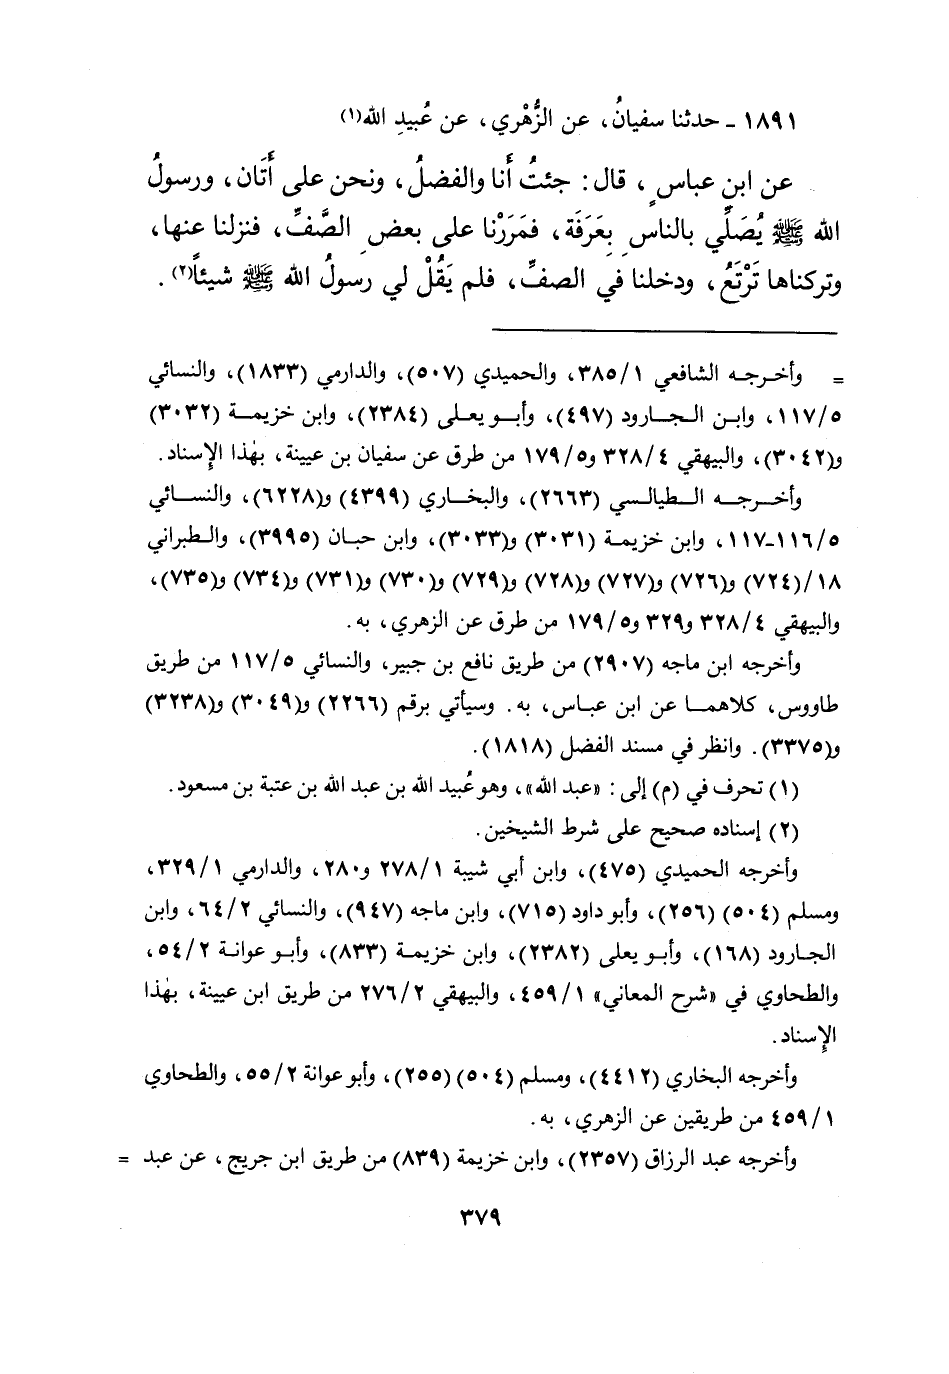 ١٨٩١ ـ حدثنا سفيانُ، عن الزُّهْري، عن عُبيدِ الله(١)
عن ابنِ عباسٍ، قال: جئتُ أَنا والفضلُ، ونحن على أَتَان، ورسولُ
الله ﷺ يُصَلِّي بالناسِ بِعَرَفَة، فمَرَرْنا على بعضِ الصَّفِّ، فنزلنا عنها،
وتركناها تَرْتَعُ، ودخلنا في الصفِّ، فلم يَقُلْ لي رسولُ الله ﷺ شيئاً(٢).
= وأخرجه الشافعي ٣٨٥/١، والحميدي (٥٠٧)، والدارمي (١٨٣٣)، والنسائي
١١٧/٥، وابن الجارود (٤٩٧)، وأبو يعلى (٢٣٨٤)، وابن خزيمة (٣٠٣٢)
و(٣٠٤٢)، والبيهقي ٣٢٨/٤ و١٧٩/٥ من طرق عن سفيان بن عيينة، بهٰذا الإسناد.
وأخرجه الطيالسي (٢٦٦٣)، والبخاري (٤٣٩٩) و(٦٢٢٨)، والنسائي
١١٦/٥-١١٧، وابن خزيمة (٣٠٣١) و(٣٠٣٣)، وابن حبان (٣٩٩٥)، والطبراني
١٨/(٧٢٤) و(٧٢٦) و(٧٢٧) و(٧٢٨) و(٧٢٩) و(٧٣٠) و(٧٣١) و(٧٣٤) و(٧٣٥)،
والبيهقي ٣٢٨/٤ و٣٢٩ و١٧٩/٥ من طرق عن الزهري، به.
وأخرجه ابن ماجه (٢٩٠٧) من طريق نافع بن جبير، والنسائي ١١٧/٥ من طريق
طاووس، كلاهما عن ابن عباس، به. وسيأتي برقم (٢٢٦٦) و(٣٠٤٩) و(٣٢٣٨)
و(٣٣٧٥). وانظر في مسند الفضل (١٨١٨).
(١) تحرف في (م) إلى: «عبد الله»، وهو عُبيد الله بن عبد الله بن عتبة بن مسعود.
(٢) إسناده صحيح على شرط الشيخين.
وأخرجه الحميدي (٤٧٥)، وابن أبي شيبة ٢٧٨/١ و٢٨٠، والدارمي ٣٢٩/١،
ومسلم (٥٠٤) (٢٥٦)، وأبو داود (٧١٥)، وابن ماجه (٩٤٧)، والنسائي ٦٤/٢، وابن
الجارود (١٦٨)، وأبو يعلى (٢٣٨٢)، وابن خزيمة (٨٣٣)، وأبو عوانة ٥٤/٢،
والطحاوي في «شرح المعاني» ٤٥٩/١، والبيهقي ٢٧٦/٢ من طريق ابن عيينة، بهٰذا
الإسناد.
وأخرجه البخاري (٤٤١٢)، ومسلم (٥٠٤) (٢٥٥)، وأبو عوانة ٥٥/٢، والطحاوي
٤٥٩/١ من طريقين عن الزهري، به.
وأخرجه عبد الرزاق (٢٣٥٧)، وابن خزيمة (٨٣٩) من طريق ابن جريج، عن عبد =
٣٧٩